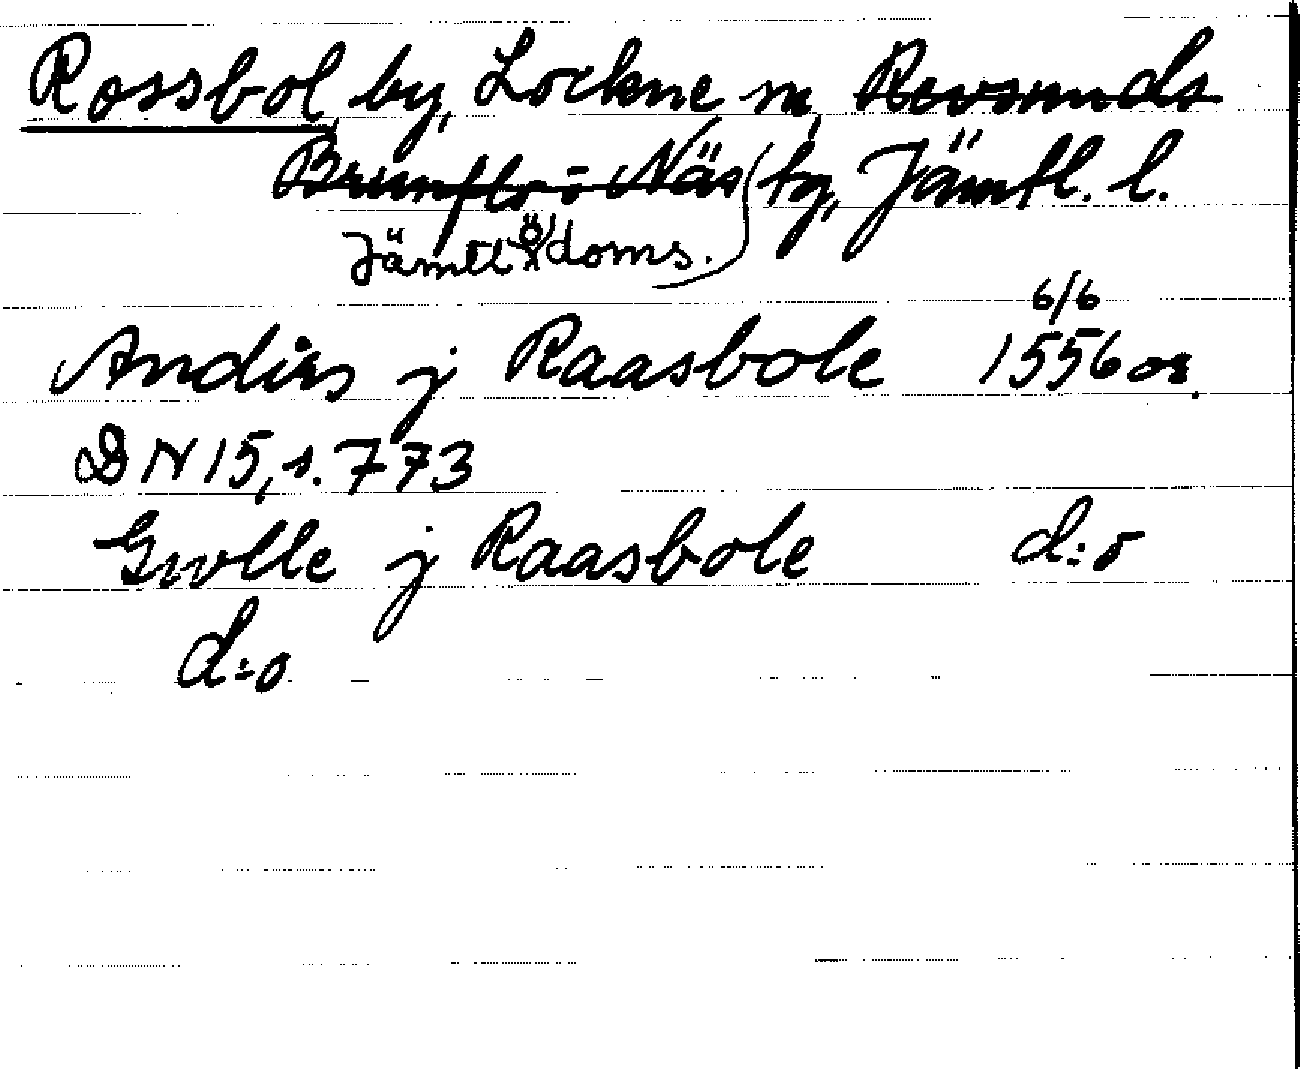 Rossbol, by, Lockne sn, Revsunds
Brunflo o Näs tg, Jämtl. l.
Jämtl Ö doms.
6/6
Andérs j Raasbole 1556 or.
DN 15, s. 773
Gwlle j Raasbole d:o
d:o